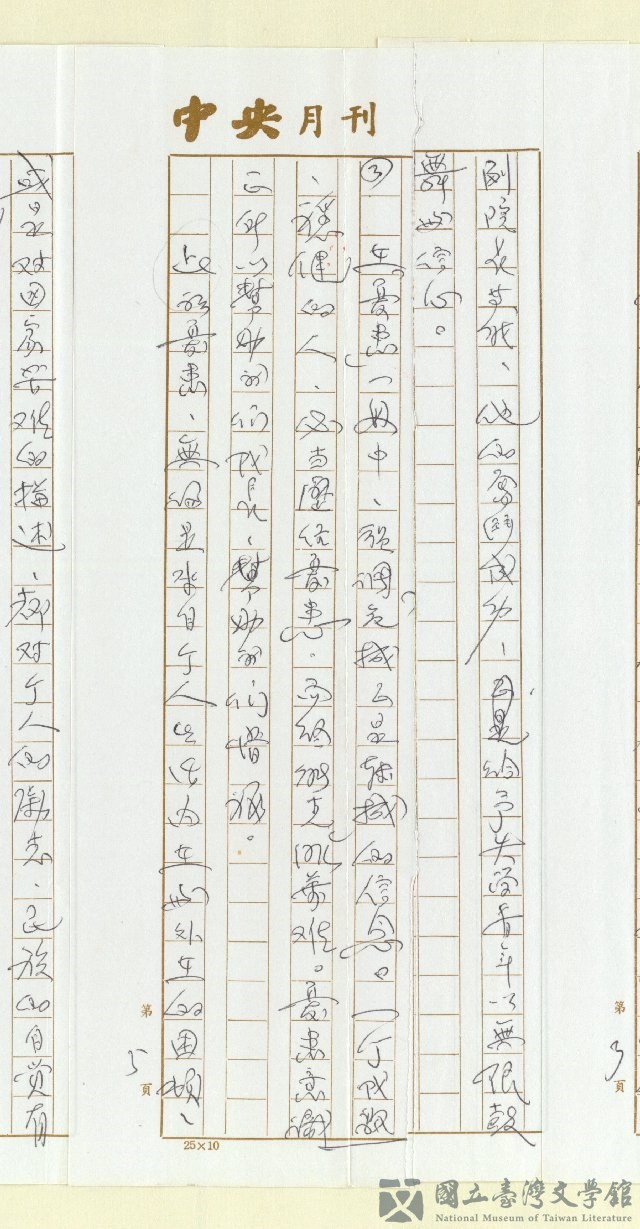 中央月刊
劇院表等於、他的奮鬥成功、因是給予失學青年以無限鼓
舞與信心。
③ 在憂患一日中、強調危機正是轉機的信念。一個成熟
、穩健的人、必當歷經憂患。而終能克服萬難。憂患意識
正所以幫助我們成長、幫助我們增強。
近的憂患、無論是來自個人生活內在與外在的困頓、
或是對國家苦難的描述、都對個人的勵志、民族的自覺有
第5頁
第3頁
25×10
國立臺灣文學館
National Museum of Taiwan Literature